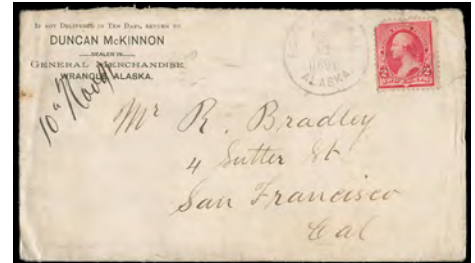 IF NOT DELIVERED IN TEN DAYS, RETURN TO
DUNCAN McKINNON
DEALER IN
GENERAL MERCHANDISE
WRANGLE ALASKA.
10" Nov
ALASKA
2 2
Mr R. Bradley
4 Sutter St
San Francisco
Cal